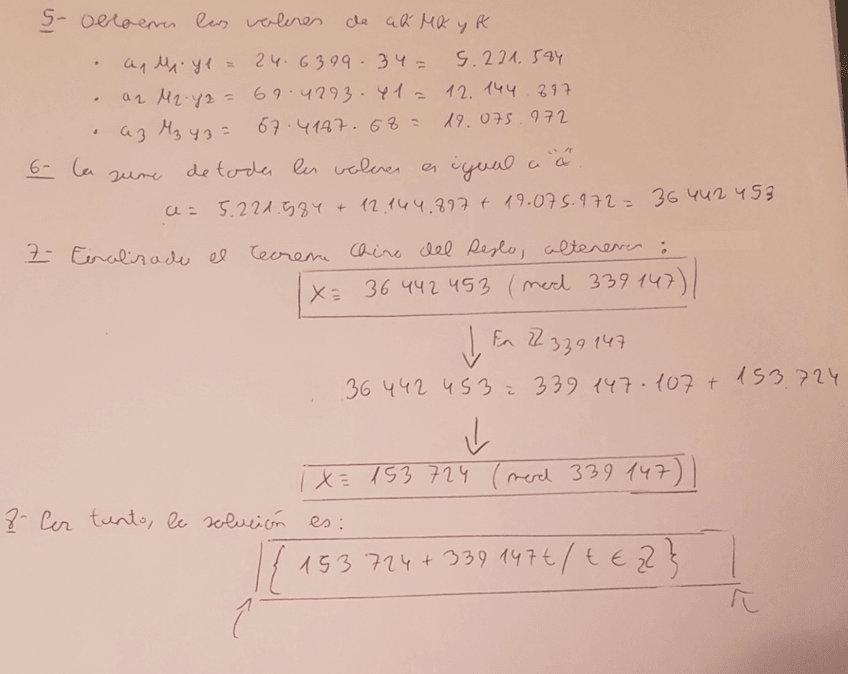 5- Obtener los valores de ak Mk yk
· a1 M1· y1 = 24· 6399 · 34 = 5.221.584
· a2 M2·y2 = 69·4293· 41 = 12.144.897
· a3 M3 y3 = 67·4187· 68 = 19.075.972
6- La suma de todos los valores es igual a "a".
a = 5.221.584 + 12.144.897 + 19.075.972 = 36 442 453
7- Finalizado el Teorema Chino del Resto, obtenemos :
x ≡ 36 442 453 (mod 339 147)
↓ En ℤ 339 147
36 442 453 = 339 147 · 107 + 153.724
↓
x ≡ 153 724 (mod 339 147)
8- Por tanto, la solución es:
{ 153 724 + 339 147t / t ∈ ℤ }